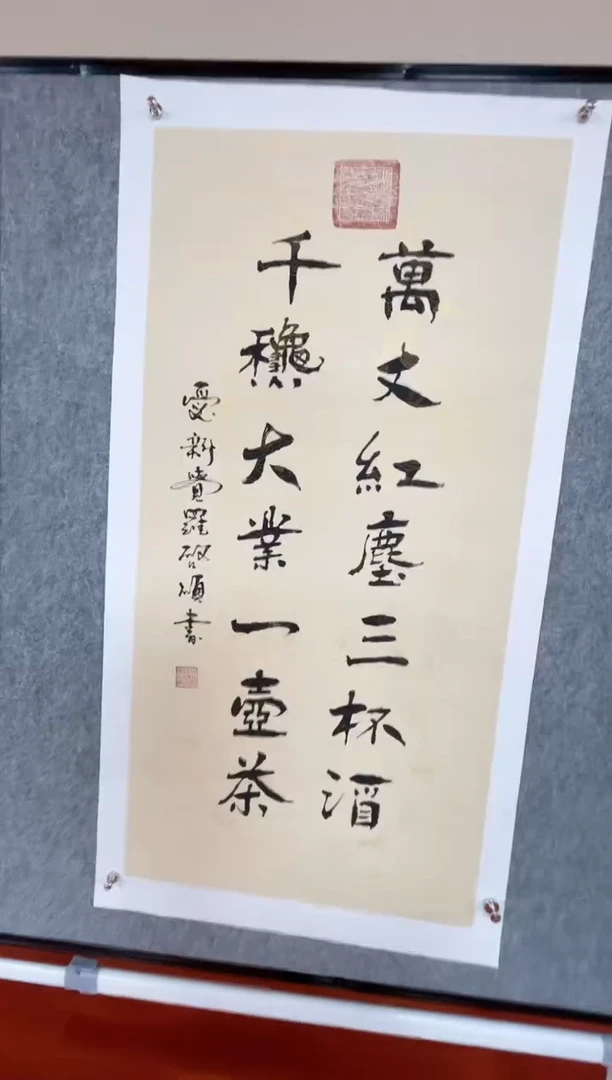 萬丈紅塵三杯酒
千龝大業一壺茶
愛新覺羅啟書